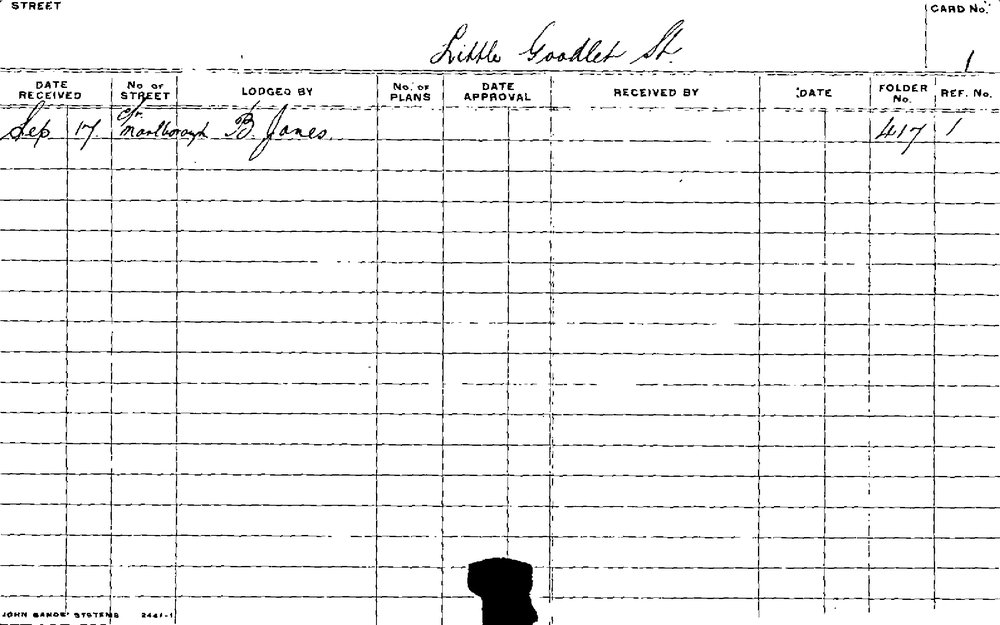 STREET
CARD No.
Little Goodlet St.
1
DATE RECEIVED
No OF STREET
LODGED BY
No. OF PLANS
DATE APPROVAL
RECEIVED BY
DATE
FOLDER No.
REF. No.
Sep 17 Cr. Marlborough B. Jones. 417 1
JOHN SANDS' SYSTEMS 2441-1